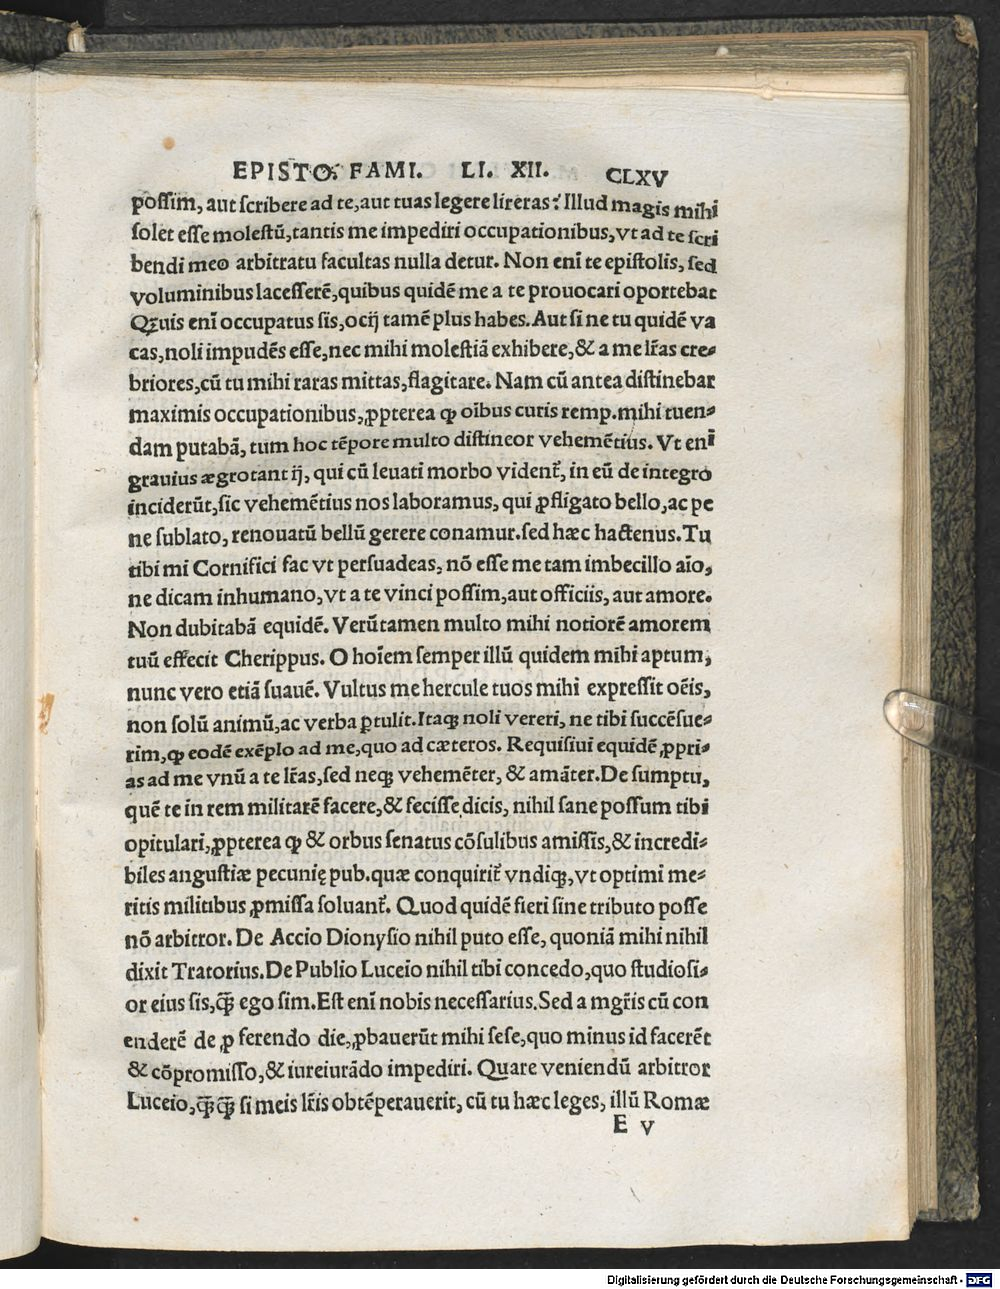 EPISTO. FAMI. LI. XII. CLXV
possim, aut scribere ad te, aut tuas legere literas? Illud magis mihi
solet esse molestũ, tantis me impediri occupationibus, vt ad te scri
bendi meo arbitratu facultas nulla detur. Non enĩ te epistolis, sed
voluminibus lacesserẽ, quibus quidẽ me a te prouocari oportebat
Qꝫuis enĩ occupatus sis, ocij tamẽ plus habes. Aut si ne tu quidẽ va
cas, noli impudẽs esse, nec mihi molestiã exhibere, & a me lr̃as cre-
briores, cũ tu mihi raras mittas, flagitare. Nam cũ antea distinebar
maximis occupationibus, ꝓpterea ꝙ oĩbus curis remp. mihi tuen-
dam putabã, tum hoc tẽpore multo distineor vehemẽtius. Vt enĩ
grauius ægrotant ij, qui cũ leuati morbo vident̃, in eũ de integro
inciderũt, sic vehemẽtius nos laboramus, qui ꝓfligato bello, ac pe
ne sublato, renouatũ bellũ gerere conamur. sed hæc hactenus. Tu
tibi mi Cornifici fac vt persuadeas, nõ esse me tam imbecillo aĩo,
ne dicam inhumano, vt a te vinci possim, aut officiis, aut amore.
Non dubitabã equidẽ. Verũtamen multo mihi notiorẽ amorem
tuũ effecit Cherippus. O hoĩem semper illũ quidem mihi aptum,
nunc vero etiã suauẽ. Vultus me hercule tuos mihi expressit oẽis,
non solũ animũ, ac verba ꝑtulit. Itaqꝫ noli vereri, ne tibi succẽsue-
rim, ꝙ eodẽ exẽplo ad me, quo ad cæteros. Requisiui equidẽ ꝓpri-
as ad me vnũ a te lr̃as, sed neqꝫ vehemẽter, & amãter. De sumptu,
quẽ te in rem militarẽ facere, & fecisse dicis, nihil sane possum tibi
opitulari, ꝓpterea ꝙ & orbus senatus cõsulibus amissis, & incredi-
biles angustiæ pecunię pub. quæ conquirit̃ vndiqꝫ, vt optimi me-
ritis militibus ꝓmissa soluant̃. Quod quidẽ fieri sine tributo posse
nõ arbitror. De Accio Dionysio nihil puto esse, quoniã mihi nihil
dixit Tratorius. De Publio Luceio nihil tibi concedo, quo studiosi-
or eius sis, q̃ꝫ ego sim. Est enĩ nobis necessarius. Sed a mgr̃is cũ con
enderẽ de ꝓ ferendo die, ꝓbauerũt mihi sese, quo minus id facerẽt
& cõpromisso, & iureiurãdo impediri. Quare veniendũ arbitror
Luceio, q̃ꝫq̃ꝫ si meis lr̃is obtẽperauerit, cũ tu hæc leges, illũ Romæ
E v
Digitalisierung gefördert durch die Deutsche Forschungsgemeinschaft - DFG